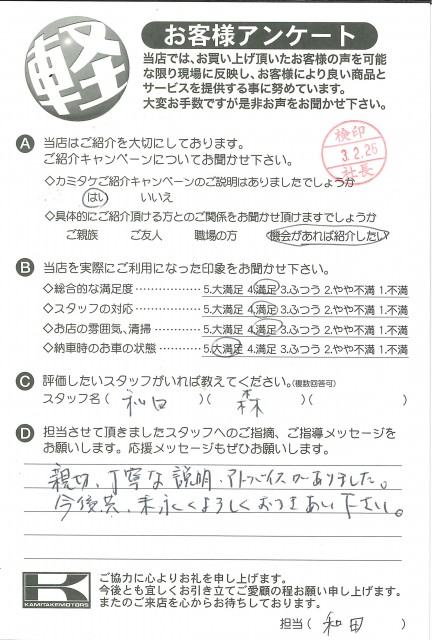 軽
お客様アンケート
当店では、お買い上げ頂いたお客様の声を可能
な限り現場に反映し、お客様により良い商品と
サービスを提供する事に努めています。
大変お手数ですが是非お声をお聞かせ下さい。
検印
3.2.26
社長
A 当店はご紹介を大切にしております。
ご紹介キャンペーンについてお聞かせ下さい。
◇カミタケご紹介キャンペーンのご説明はありましたでしょうか
はい いいえ
◇具体的にご紹介頂ける方とのご関係をお聞かせ頂けますでしょうか
ご親族 ご友人 職場の方 機会があれば紹介したい
B 当店を実際にご利用になった印象をお聞かせ下さい。
◇総合的な満足度……………5.大満足 4.満足 3.ふつう 2.やや不満 1.不満
◇スタッフの対応……………5.大満足 4.満足 3.ふつう 2.やや不満 1.不満
◇お店の雰囲気、清掃………5.大満足 4.満足 3.ふつう 2.やや不満 1.不満
◇納車時のお車の状態………5.大満足 4.満足 3.ふつう 2.やや不満 1.不満
C 評価したいスタッフがいれば教えてください。(複数回答可)
スタッフ名( 和田 )( 森 )( )
D 担当させて頂きましたスタッフへのご指摘、ご指導メッセージを
お願いします。応援メッセージもぜひお願いします。
親切、丁寧な説明・アドバイスがありました。
今後共、末永くよろしくおつきあい下さい。
K
KAMITAKEMOTORS
ご協力に心よりお礼を申し上げます。
今後とも宜しくお引き立てご愛顧の程お願い申し上げます。
またのご来店を心からお待ちしております。
担当( 和田 )